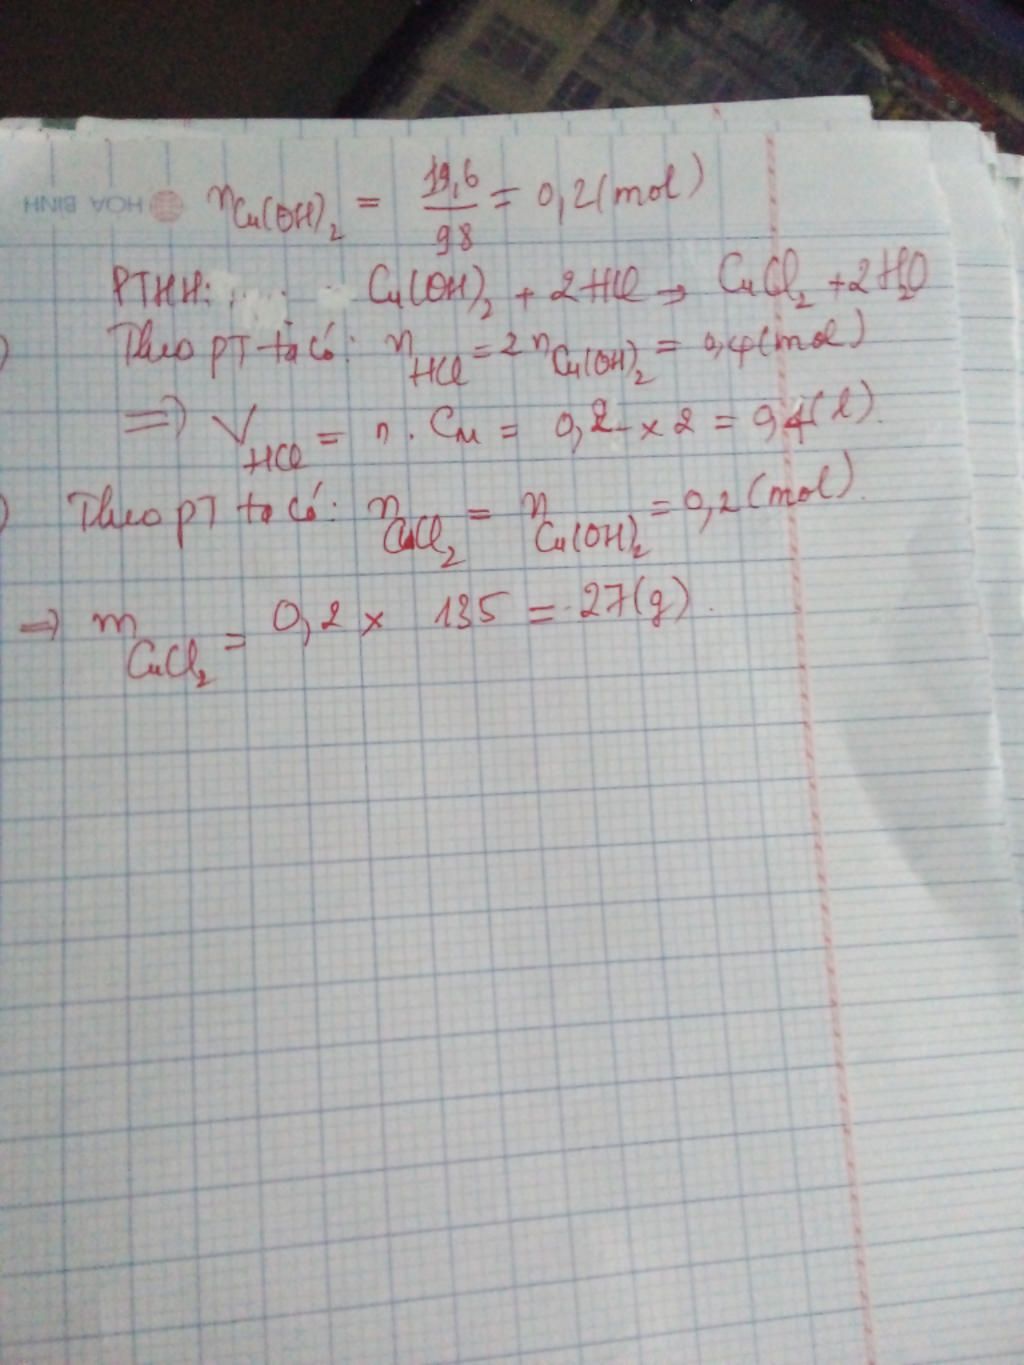 HOA BINH
n Cu(OH)₂ = 19,6/98 = 0,2 (mol)
PTHH: Cu(OH)₂ + 2HCl → CuCl₂ + 2H₂O
) Theo PT ta có: n HCl = 2 n Cu(OH)₂ = 0,4 (mol)
=> V HCl = n . CM = 0,2 × 2 = 0,4 (l).
) Theo PT ta có: n CuCl₂ = n Cu(OH)₂ = 0,2 (mol).
=> m CuCl₂ = 0,2 × 135 = 27 (g).